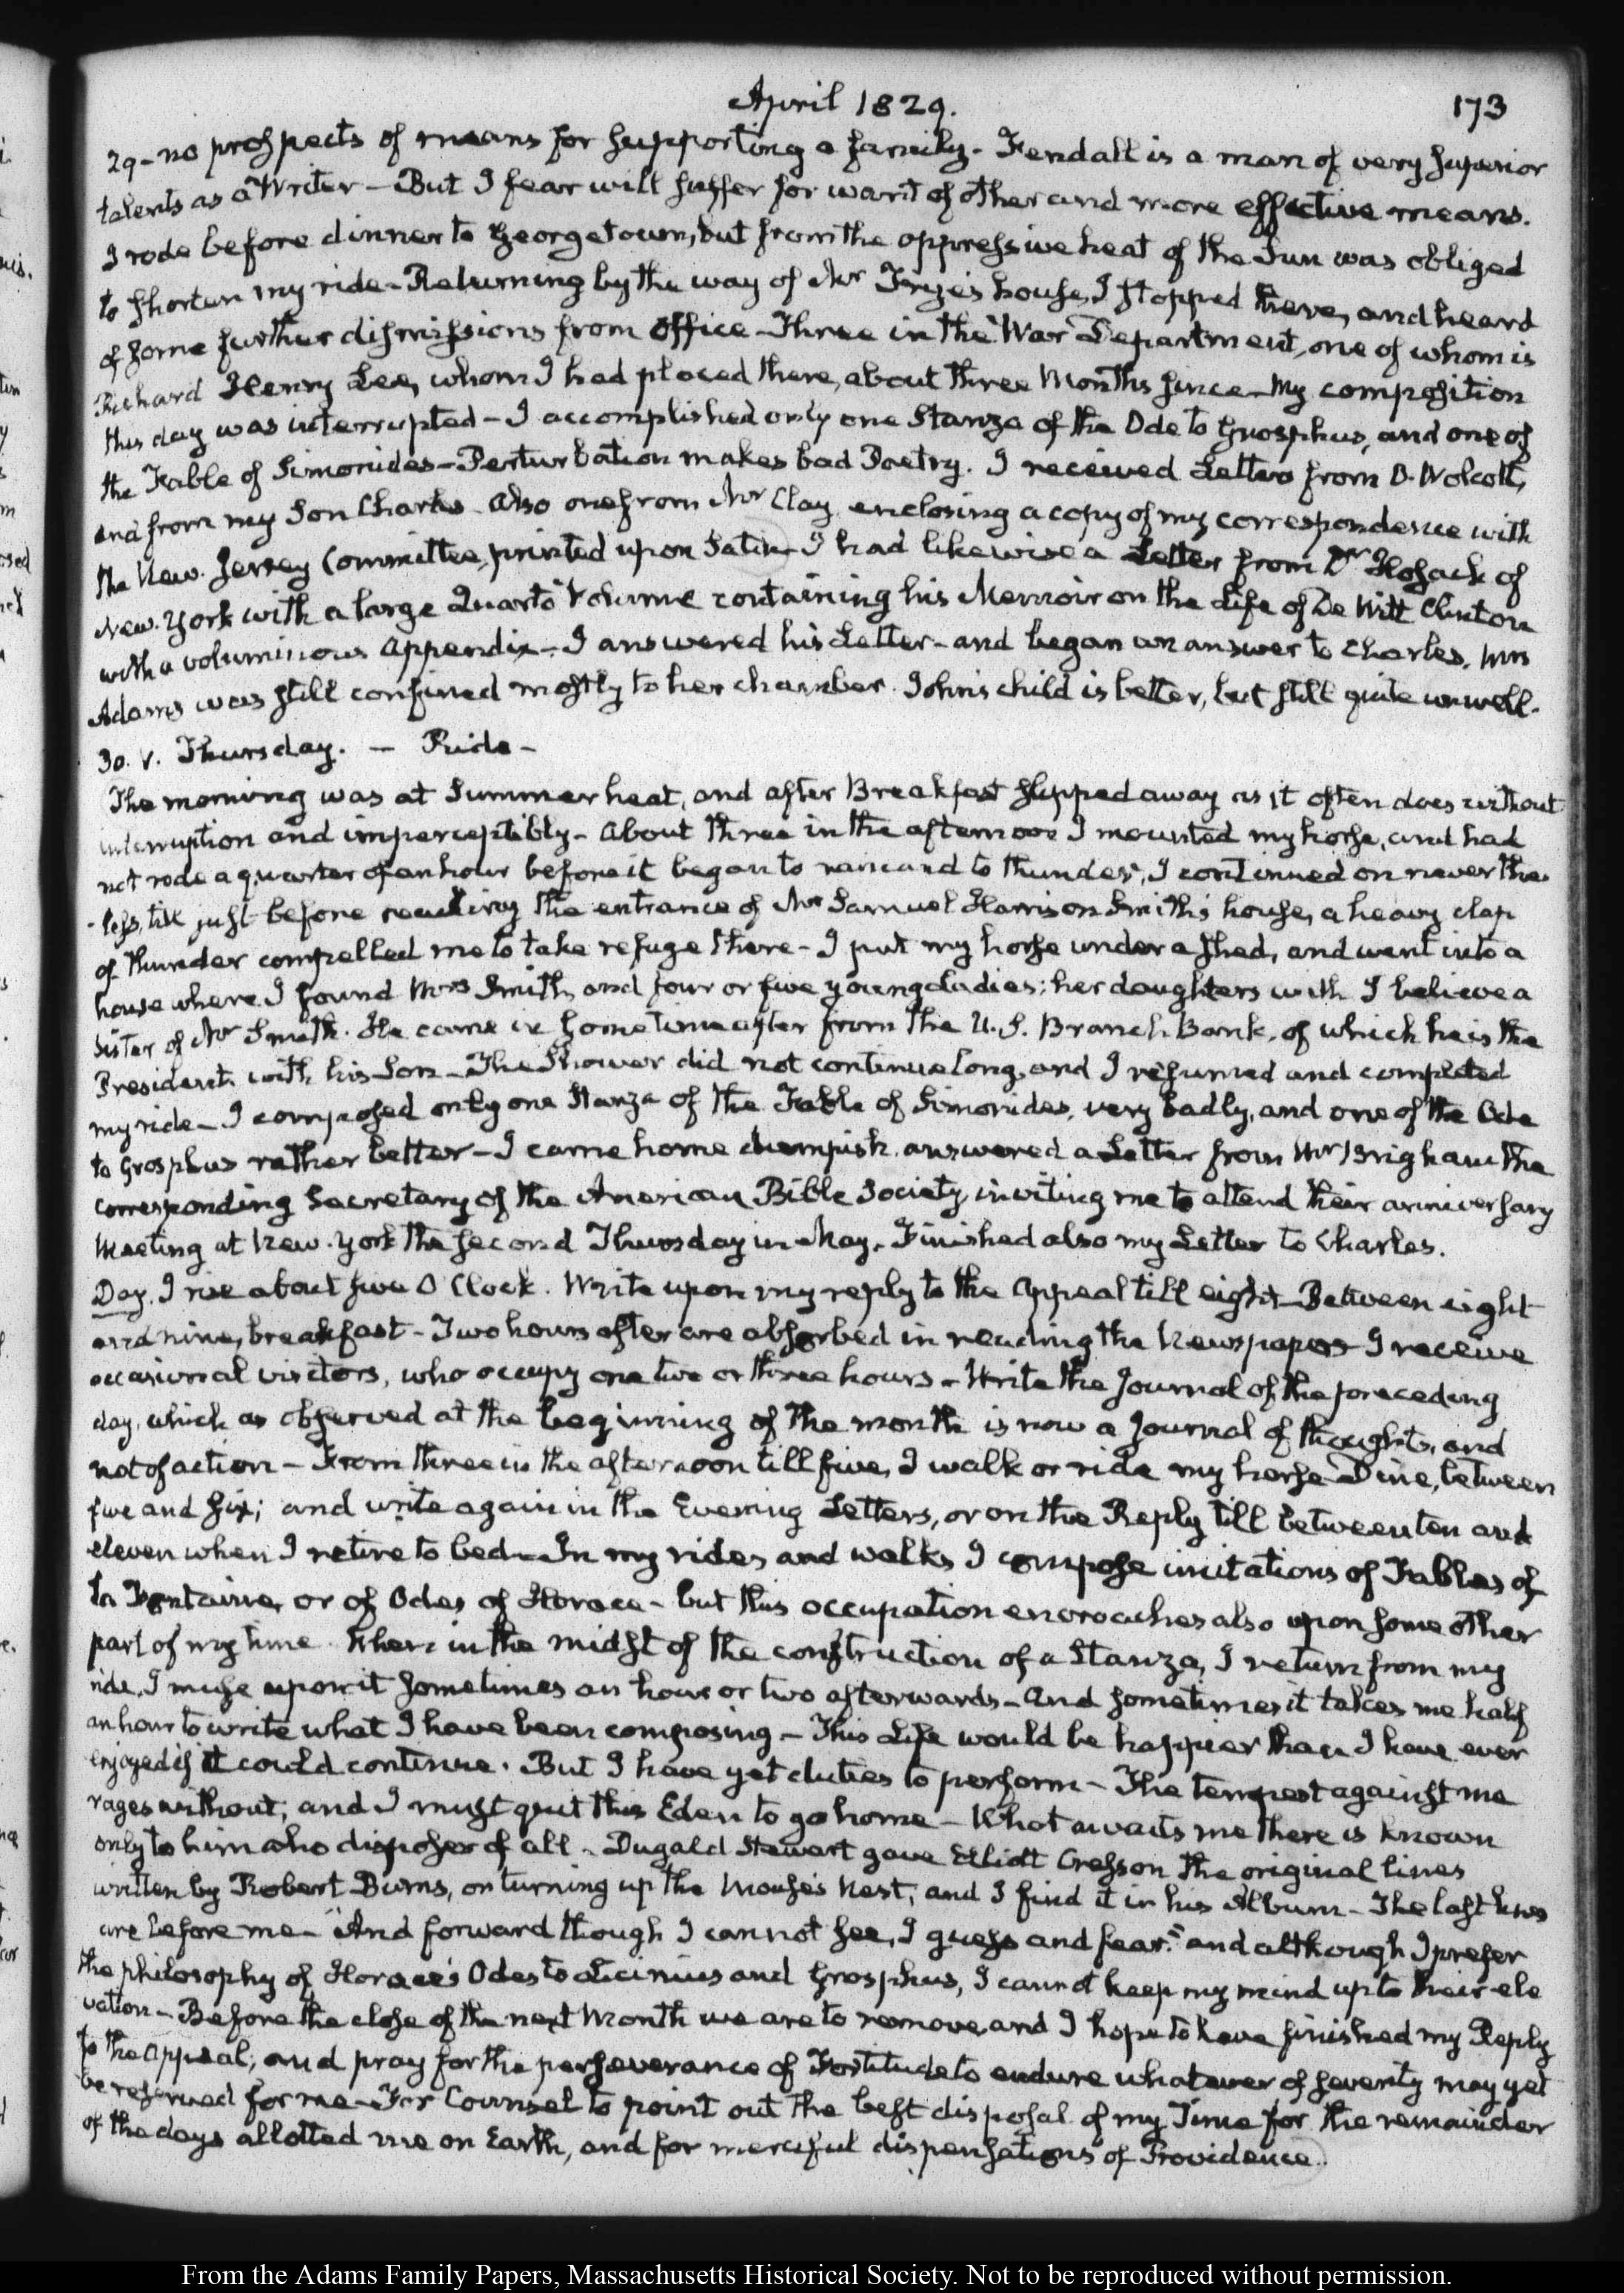 April 1829.
173
29 - no prospects of means for supporting a family - Kendall is a man of very superior
talents as a Writer - But I fear will suffer for want of other and more effective means.
I rode before dinner to Georgetown, but from the oppressive heat of the Sun was obliged
to shorten my ride - Returning by the way of Mr Frye's house, I stopped there, and heard
of some further dismissions from office - Three in the War Department, one of whom is
Richard Henry Lee, whom I had placed there, about three Months since - My composition
this day was interrupted - I accomplished only one Stanza of the Ode to Grosphus, and one of
the Fable of Simonides - Perturbation makes bad Poetry. I received Letters from O. Wolcott,
and from my Son Charles. Also one from Mr Clay enclosing a copy of my correspondence with
the New-Jersey Committee, printed upon Satin - I had likewise a Letter from Dr Hosack of
New-York with a large Quarto Volume containing his Memoir on the Life of De Witt Clinton
with a voluminous Appendix - I answered his Letter - and began an answer to Charles. Mrs
Adams was still confined mostly to her chamber. John's child is better, but still quite unwell.
30. V. Thursday. - Ride -
The morning was at Summer heat, and after Breakfast slipped away as it often does without
interruption and imperceptibly - About three in the afternoon I mounted my horse, and had
not rode a quarter of an hour before it began to rain and to thunder, I continued on neverthe-
-less, till just before reaching the entrance of Mr Samuel Harrison Smith's house, a heavy clap
of thunder compelled me to take refuge there - I put my horse under a shed, and went into a
house where I found Mrs Smith, and four or five young Ladies; her daughters with I believe a
Sister of Mr Smith. He came in sometime after from the U.S. Branch Bank, of which he is the
President, with his Son - The Shower did not continue long, and I resumed and completed
my ride - I composed only one Stanza of the Fable of Simonides, very badly, and one of the Ode
to Grosphus rather better - I came home dumpish, answered a Letter from Mr Brigham the
corresponding Secretary of the American Bible Society, inviting me to attend their anniversary
Meeting at New-York the second Thursday in May. Finished also my Letter to Charles.
Day. I rise about five O'Clock. Write upon my reply to the Appeal till eight - Between eight
and nine, breakfast - Two hours after are absorbed in reading the Newspapers - I receive
occasional visitors, who occupy one two or three hours - Write the Journal of the preceding
day, which as observed at the beginning of the month is now a Journal of thoughts, and
not of action - From three in the afternoon till five, I walk or ride my horse - Dine, between
five and six; and write again in the Evening Letters, or on the Reply till between ten and
eleven when I retire to bed - In my rides and walks I compose imitations of Fables of
La Fontaine, or of Odes of Horace - but this occupation encroaches also upon some other
part of my time. When in the midst of the construction of a Stanza, I return from my
ride, I muse upon it sometimes an hour or two afterwards - And sometimes it takes me half
an hour to write what I have been composing - This Life would be happier than I have ever
enjoyed if it could continue. But I have yet duties to perform - The tempest against me
rages without, and I must quit this Eden to go home - What awaits me there is known
only to him who disposes of all. Dugald Stewart gave Elliott Cresson the original lines
written by Robert Burns, on turning up the Mouse's Nest, and I find it in his Album - The last lines
are before me - "And forward though I cannot see, I guess and fear." and although I prefer
the philosophy of Horace's Odes to Licinius and Grosphus, I cannot keep my mind up to their ele
vation - Before the close of the next Month we are to remove, and I hope to have finished my Reply
to the Appeal, and pray for the perseverance of Fortitude to endure whatever of severity may yet
be reserved for me - For Counsel to point out the best disposal of my Time for the remainder
of the days allotted me on Earth, and for merciful dispensations of Providence.
From the Adams Family Papers, Massachusetts Historical Society. Not to be reproduced without permission.